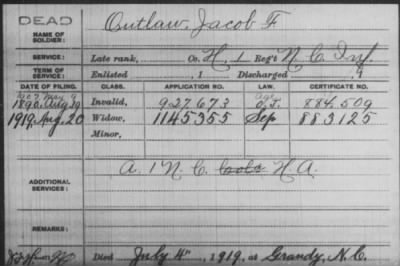 DEAD
NAME OF SOLDIER:
Outlaw, Jacob F
SERVICE:
Late rank, Co. H, 1 Reg't N. C. Inf.
TERM OF SERVICE:
Enlisted , 1 Discharged , 1
DATE OF FILING. CLASS. APPLICATION NO. LAW. CERTIFICATE NO.
1907 May 9
1890. Aug. 29 Invalid, 927.673 Age O.I. 884.509
1919. Aug. 20 Widow, 1145355 Sep 883125
Minor,
ADDITIONAL SERVICES:
A. 1 N. C. H. A.
REMARKS:
Died July 4th, 1919, at Grandy, N. C.